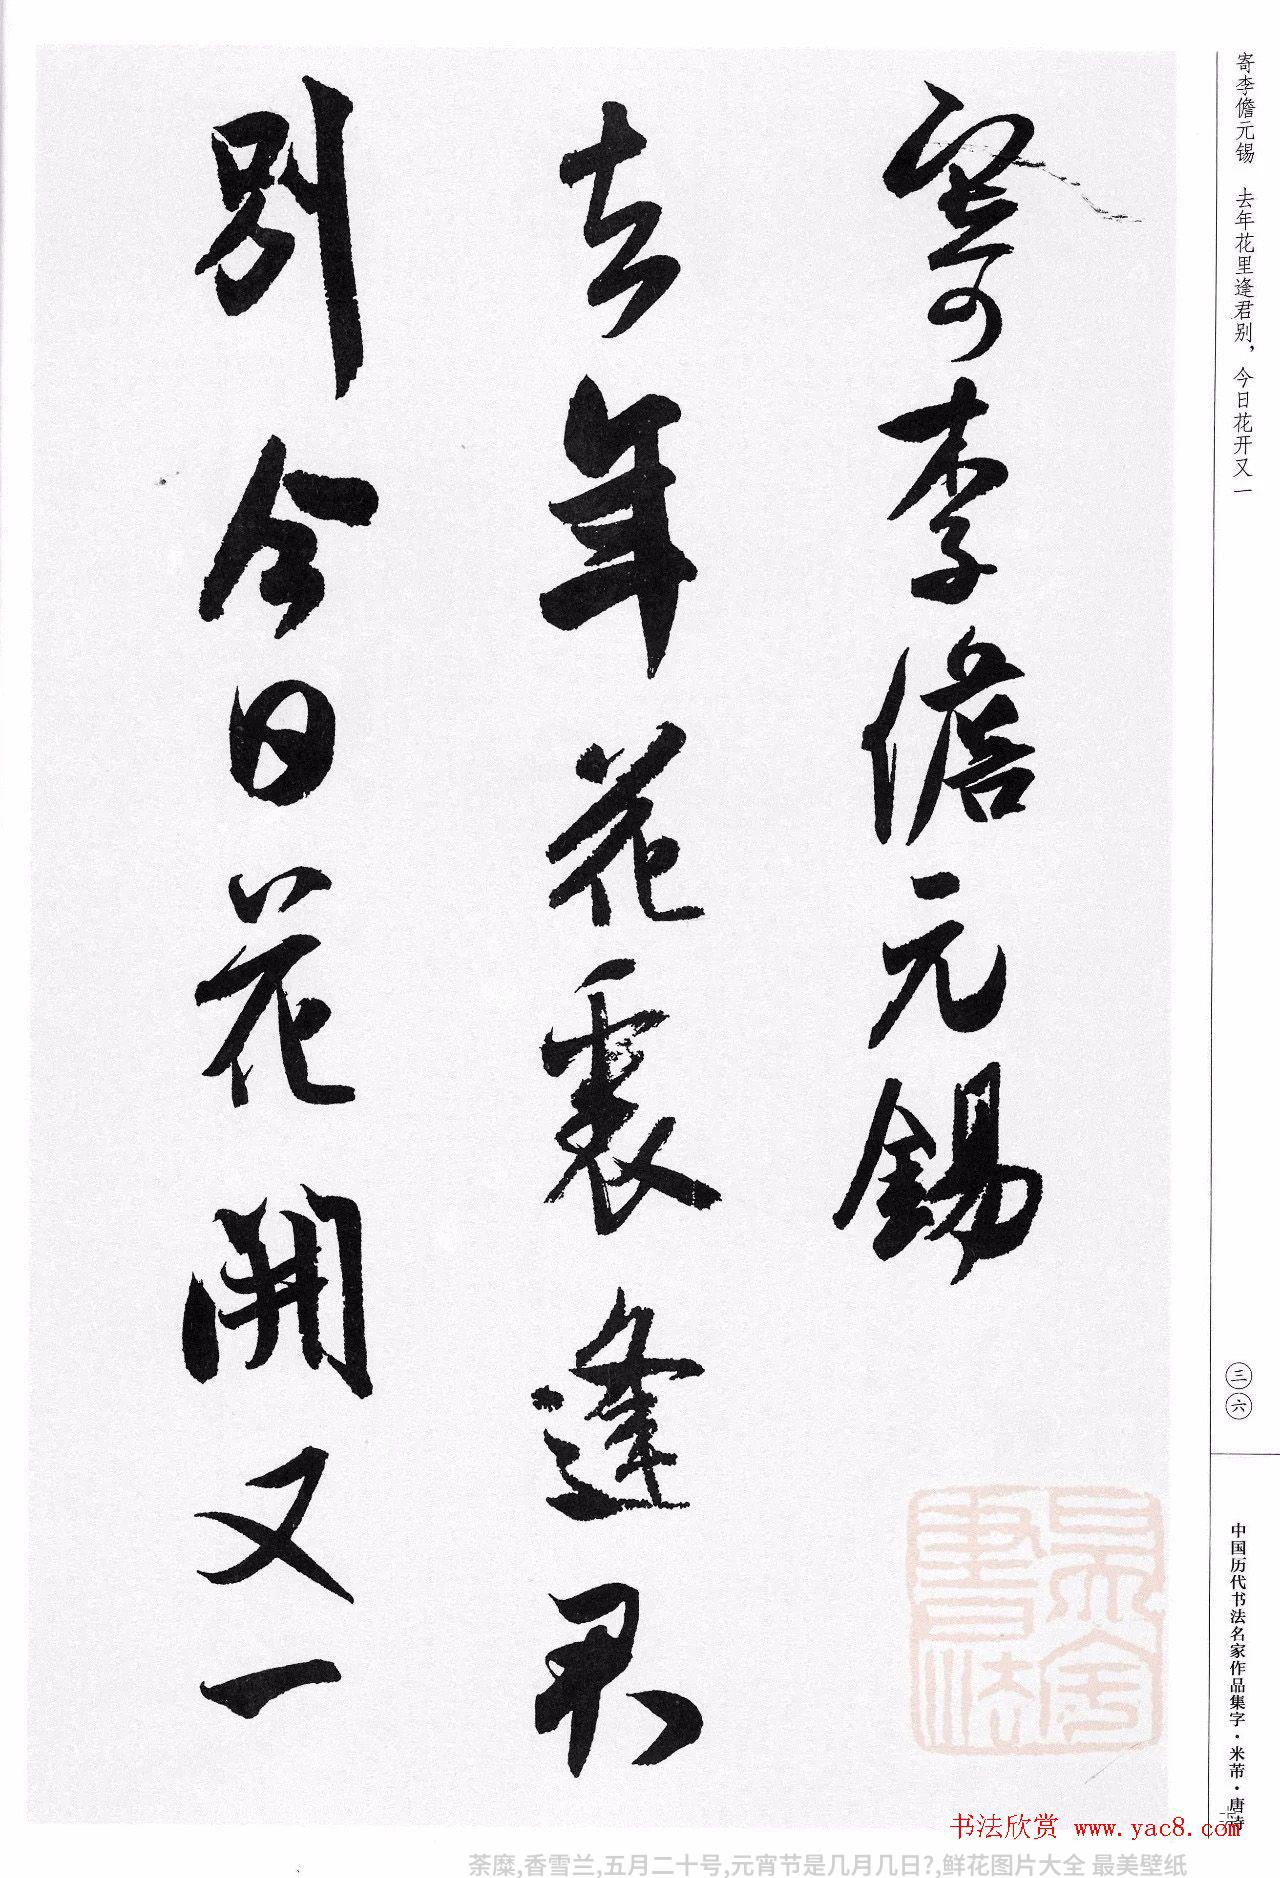 寄李儋元锡 去年花里逢君别，今日花开又一
寄李儋元錫
去年花裏逢君
別今日花開又一
三六
中国历代书法名家作品集字·米芾·唐诗
书法欣赏 www.yac8.com
荼糜,香雪兰,五月二十号,元宵节是几月几日?,鲜花图片大全 最美壁纸